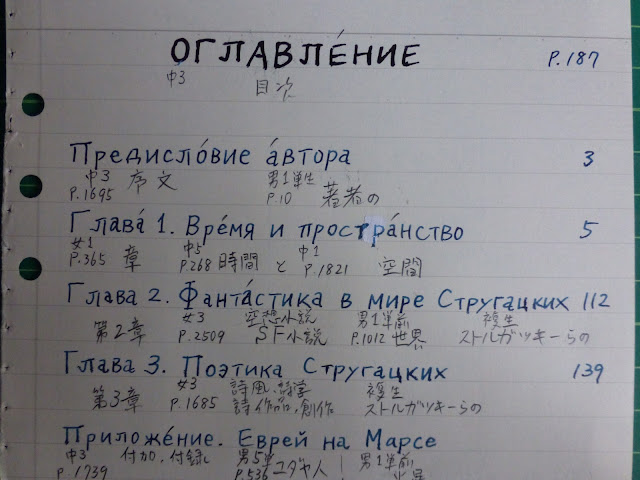 ОГЛАВЛЕ́НИЕ P.187
中3 目次
Предисло́вие а́втора 3
中3 序文 男1単生 著者の
P.1695 P.10
Глава́ 1. Вре́мя и простра́нство 5
女1 章 中5 時間 と 中1 空間
P.365 P.268 P.1821
Глава 2. Фанта́стика в мире Стругацких 112
第2章 女3 空想小説 男1単前 世界 複生
P.2509 SF小説 P.1012 ストルガツキーらの
Глава 3. Поэтика Стругацких 139
第3章 女3 詩風、詩学 複生
P.1685 詩作品、創作 ストルガツキーらの
Приложе́ние. Еврей на Марсе
中3 付加、付録 男5単 ユダヤ人 男1単前
P.1739 P.536 火星